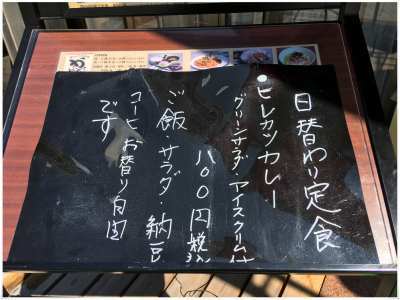 日替わり定食
●ヒレカツカレー
グリーンサラダ・アイスクリーム付
八〇〇円税込
ご飯 サラダ・納豆
コーヒーお替り自由
です